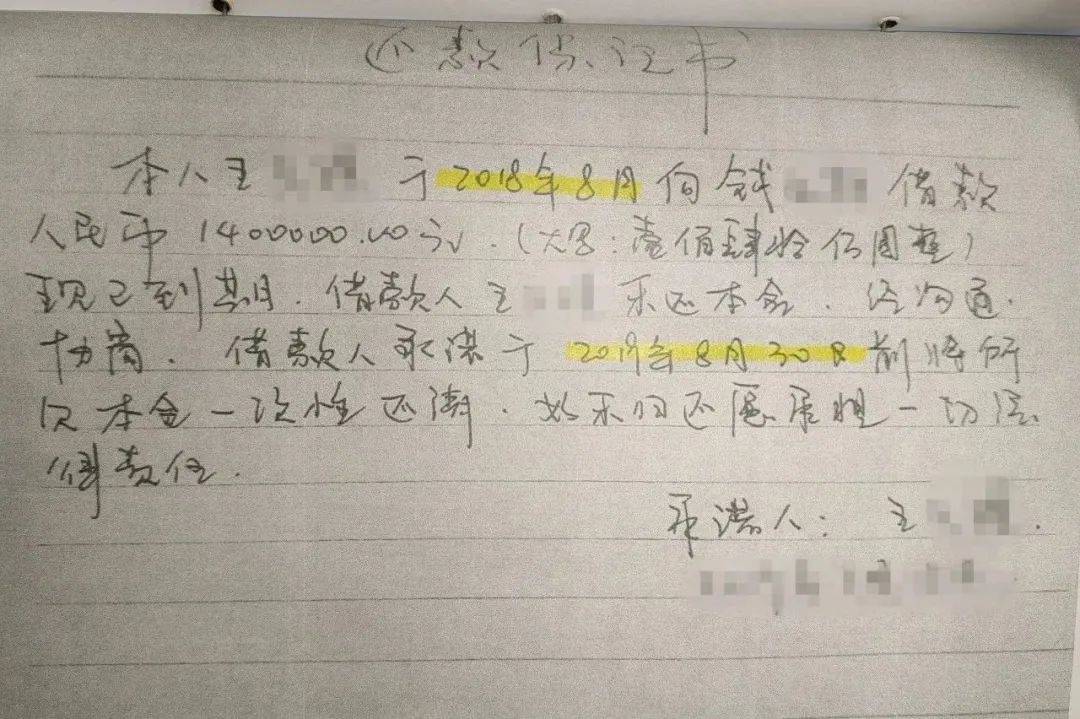 还款保证书
本人王 于2018年8月向钱 借款
人民币1400000.00元.(大写:壹佰肆拾万圆整)
现已到期.借款人王 未还本金.经沟通.
协商.借款人承诺于2019年8月30日前将所
欠本金一次性还清.如未归还愿承担一切法
律责任.
承诺人:王 .